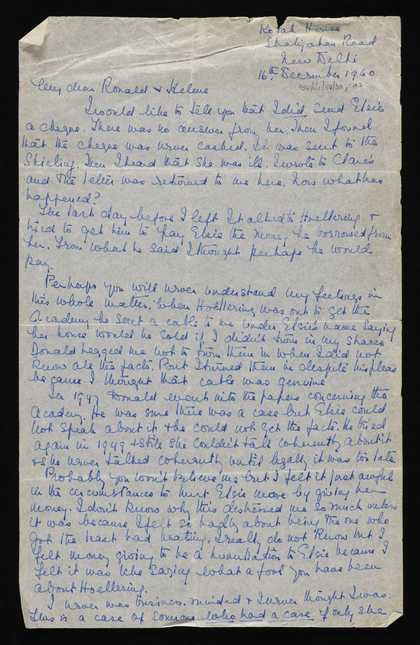 Kotah House
Shahjahan Road
New Delhi
16th December 1960
My dear Ronald & Helene
I would like to tell you that I did send Elsie
a cheque. There was no answer from her. Then I found
that the cheque was never cashed. It was sent to the
Shieling. Then I heard that she was ill. I wrote to
and the letter was returned to me here. Now what has
happened?
The last day before I left I talked to Hoellering &
tried to get him to pay Elsie the money he borrowed from
her. From what he said I thought perhaps he would
pay.
Perhaps you will never understand my feelings in
this whole matter. When Hoellering was out to get the
Academy he sent a cable to me under Elsie's name saying
her house would be sold if I didn't turn in my shares
Donald begged me not to turn them in when I did not
know all the facts. But I turned them in despite his pleas
because I thought that cable was genuine
In 1947 Donald went into the papers concerning the
Academy. He was sure there was a case but Elsie could
not speak about it & he could not get the facts. He tried
again in 1949 & still she couldn't talk coherently about it
& she never talked coherently until legally it was too late
Probably you won't believe me but I felt it just awful
in the circumstances to hurt Elsie more by giving her
money. I don't know why this distressed me so much unless
it was because I felt so badly about being the one who
got the least bad treating. I really do not know but I
felt money giving to be a humiliation to Elsie because I
felt it was like saying what a fool you have been
about Hoellering.
I never was business minded & I never thought I was.
This is a case of someone who had a case if only she